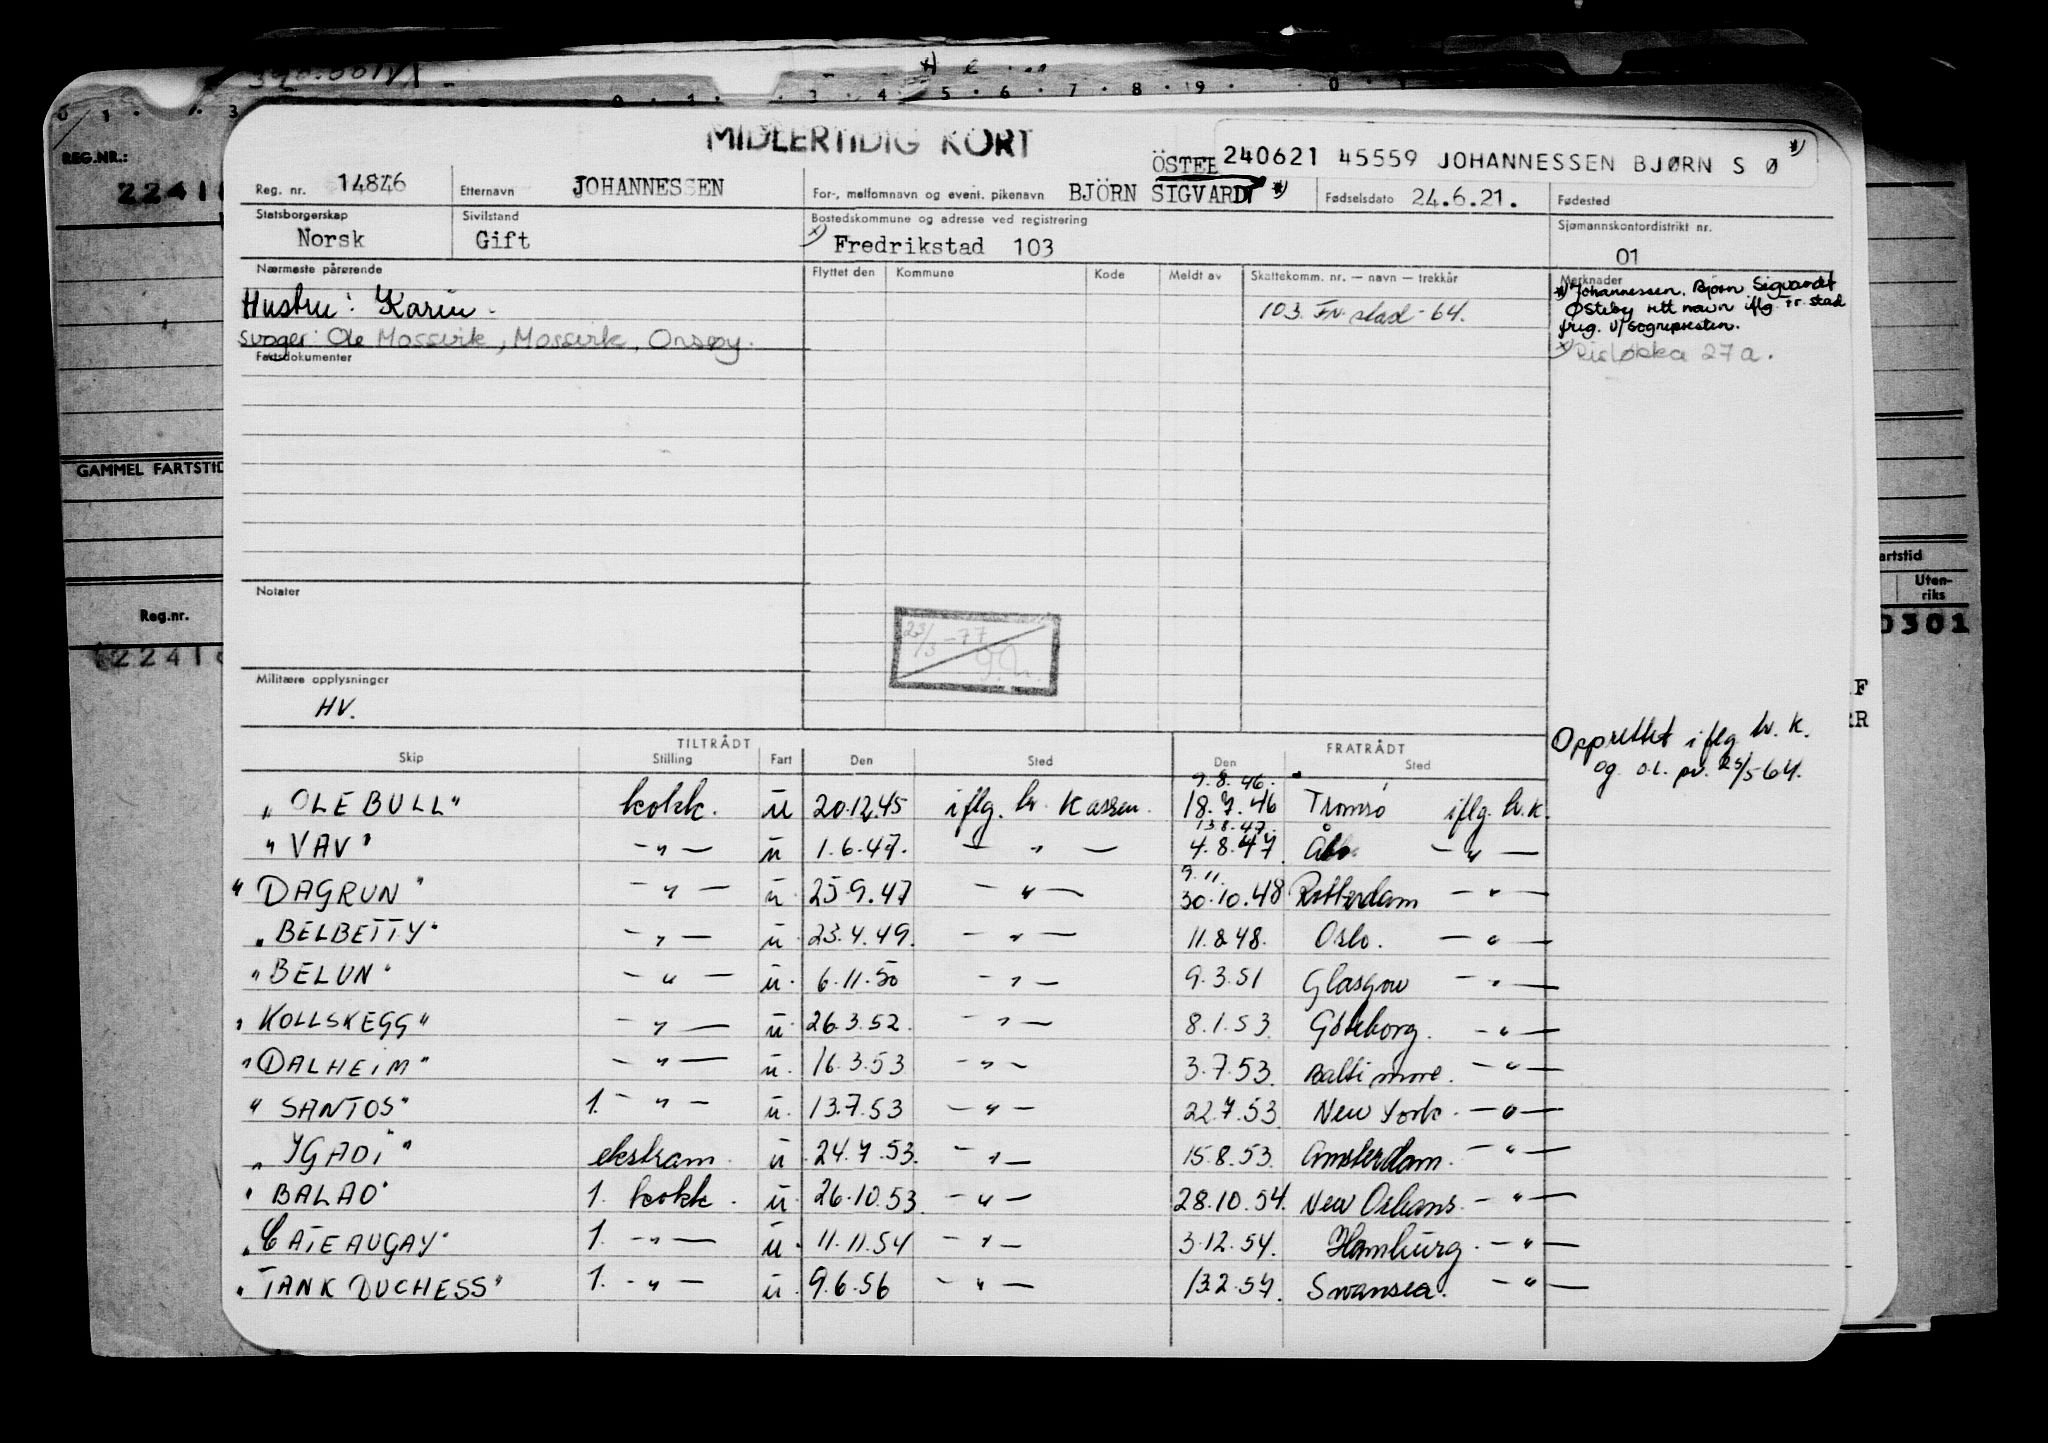 0 1 3 4 5 6 7 8 9 0
MIDLERTIDIG KORT
240621 45559 JOHANNESSEN BJØRN S Ø *)
REG.NR.:
2241
Reg. nr. 14846 Etternavn JOHANNESSEN For-, mellomnavn og event. pikenavn BJÖRN SIGVARDT *) Fødselsdato 24.6.21. Fødested
Statsborgerskap Norsk Sivilstand Gift Bostedskommune og adresse ved registrering x) Fredrikstad 103 Sjømannskontordistrikt nr. 01
Nærmeste pårørende Flyttet den Kommune Kode Meldt av Skattekomm. nr. — navn — trekkår Merknader
Hustru: Karin. 103 Fr.stad - 64.
*) Johannessen, Bjørn Sigvardt
Østeby rett navn iflg. Fr.stad
freg. v/sognepresten.
svoger: Ole Mossvik, Mossvik, Onsøy.
x) Risløkka 27a.
Fartsdokumenter
GAMMEL FARTSTID
artstid
Uten-
riks
0301
Reg.nr.
2241
Notater
25/3 -77
Militære opplysninger
HV.
Opprettet iflg hv. k.
og o.l. pr. 25/5 64.
TILTRÅDT FRATRÅDT
Skip Stilling Fart Den Sted Den Sted
9.8.46.
"OLE BULL" kokk. u 20.12.45 iflg. hv. Kassen. 18.7.46 Tromsø iflg. hv.k.
13.8.47.
"VAV" — " — u 1.6.47. — " — 4.8.47 Åbo — " —
9.11.
"DAGRUN" — " — u 25.9.47 — " — 30.10.48 Rotterdam — " —
"BELBETTY" — " — u 23.4.49. — " — 11.8.48. Oslo. — " —
"BELUN" — " — u. 6.11.50 — " — 9.3.51 Glasgow — " —
"KOLLSKEGG" — " — u. 26.3.52. — " — 8.1.53. Göteborg. — " —
"DALHEIM" — " — u. 16.3.53 — " — 3.7.53. Baltimore. — " —
"SANTOS" 1. — " — u. 13.7.53 — " — 22.7.53 New York. — " —
"YGADI" ekstram. u. 24.7.53. — " — 15.8.53. Amsterdam. — " —
"BALAO" 1. kokk. u. 26.10.53 — " — 28.10.54. New Orleans. — " —
"CATEAUGAY" 1. — " — u. 11.11.54 — " — 3.12.54. Hamburg. — " —
"TANK DUCHESS" 1. — " — u. 9.6.56 — " — 13.2.57. Swansea. — " —